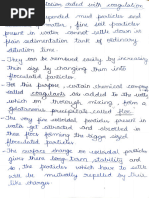 coagulation
suspended dust particles and
fine soil particles
present in water cannot settle down in
plain sedimentation tank of ordinary
dilution time
They can be removed easily by increasing
their size by changing them into
flocculated particles.
For this purpose, certain chemical comp-
called coagulants are added to the water
which on thorough mixing, form a
gelatinous precipitate called floc
The very fine colloidal particles present in
water get attracted and absorbed in
these floc forming the bigger sized
flocculated particles
The surface charge on colloidal particles
give them long term stability and
so the particles which have to settle
are be mutually repelled by their
like charge.